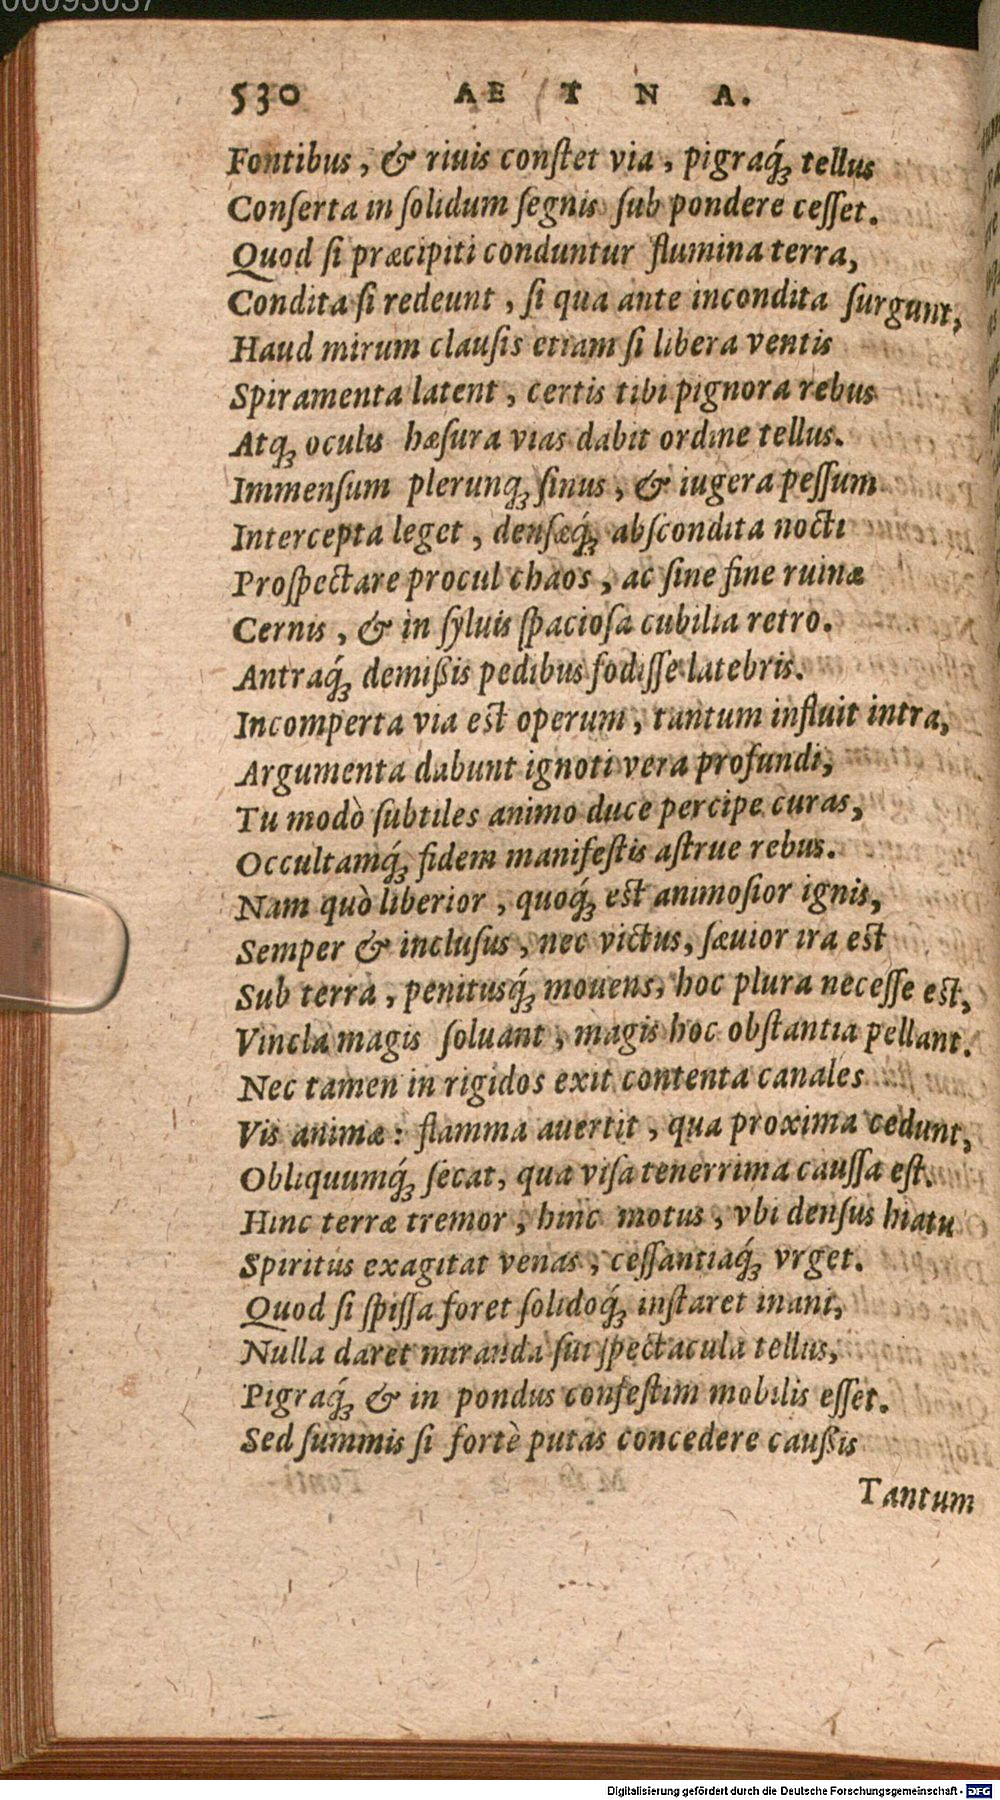 00093037
530 AETNA.
Fontibus, & riuis conſtet via, pigraq́ꝫ tellus
Conſerta in ſolidum ſegnis ſub pondere ceſſet.
Quod ſi præcipiti conduntur flumina terra,
Condita ſi redeunt, ſi qua ante incondita ſurgunt,
Haud mirum clauſis etiam ſi libera ventis
Spiramenta latent, certis tibi pignora rebus
Atqꝫ oculis hæſura vias dabit ordine tellus.
Immenſum plerunqꝫ ſinus, & iugera peſſum
Intercepta leget, denſæq́ꝫ abſcondita nocti
Proſpectare procul chaos, ac ſine fine ruinæ
Cernis, & in ſyluis ſpacioſa cubilia retro.
Antraq́ꝫ demißis pedibus fodiſſe latebris.
Incomperta via est operum, tantum influit intra,
Argumenta dabunt ignoti vera profundi,
Tu modò ſubtiles animo duce percipe curas,
Occultamq́ꝫ fidem manifeſtis aſtrue rebus.
Nam quò liberior, quoq́ꝫ est animoſior ignis,
Semper & incluſus, nec victus, ſæuior ira est
Sub terra, penitusq́ꝫ mouens, hoc plura neceſſe est,
Vincla magis ſoluant, magis hoc obſtantia pellant.
Nec tamen in rigidos exit contenta canales
Vis animæ: flamma auertit, qua proxima cedunt,
Obliquumq́ꝫ ſecat, qua viſa tenerrima cauſſa eſt.
Hinc terræ tremor, hinc motus, vbi denſus hiatu
Spiritus exagitat venas, ceſſantiaq́ꝫ vrget.
Quod ſi ſpiſſa foret ſolidoq́ꝫ inſtaret inani,
Nulla daret miranda ſui ſpectacula tellus,
Pigraq́ꝫ & in pondus confeſtim mobilis eſſet.
Sed ſummis ſi fortè putas concedere caußis
Tantum
Digitalisierung gefördert durch die Deutsche Forschungsgemeinschaft - DFG